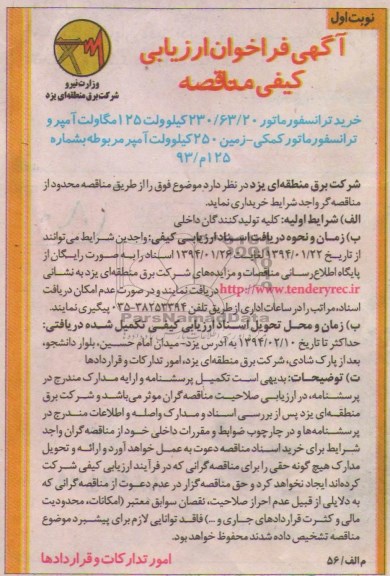 نوبت اول
آگهی فراخوان ارزیابی
کیفی مناقصه
وزارت نیرو
شرکت برق منطقه‌ای یزد
خرید ترانسفورماتور ۲۳۰/۶۳/۲۰ کیلوولت ۱۲۵ مگاولت آمپر و
ترانسفورماتور کمکی - زمین ۲۵۰ کیلوولت آمپر مربوطه بشماره
۱۲۵م/۹۳
شرکت برق منطقه‌ای یزد در نظر دارد موضوع فوق را از طریق مناقصه محدود از
مناقصه گر واجد شرایط خریداری نماید.
الف) شرایط اولیه: کلیه تولید کنندگان داخلی
ب) زمان و نحوه دریافت اسناد ارزیابی کیفی: واجدین شرایط می‌توانند
از تاریخ ۱۳۹۴/۰۱/۲۲ لغایت ۱۳۹۴/۰۱/۲۶ اسناد را به صورت رایگان از
پایگاه اطلاع رسانی مناقصات و مزایده‌های شرکت برق منطقه‌ای یزد به نشانی
http://www.tenderyrec.ir دریافت نمایند و در صورت عدم امکان دریافت
اسناد، مراتب را در ساعات اداری از طریق تلفن ۳۸۲۵۳۳۹۴-۰۳۵ پیگیری نمایند.
ب) زمان و محل تحویل اسناد ارزیابی کیفی تکمیل شده دریافتی:
حداکثر تا تاریخ ۱۳۹۴/۰۲/۱۰ به آدرس یزد- میدان امام حسین، بلوار دانشجو،
بعد از پارک شادی، شرکت برق منطقه‌ای یزد، امور تدارکات و قراردادها
ت) توضیحات: بدیهی است تکمیل پرسشنامه و ارایه مدارک مندرج در
پرسشنامه، در ارزیابی صلاحیت مناقصه گران موثر می‌باشد و شرکت برق
منطقه‌ای یزد پس از بررسی اسناد و مدارک واصله و اطلاعات مندرج در
پرسشنامه‌ها و در چارچوب ضوابط و مقررات داخلی خود از مناقصه گران واجد
شرایط برای خرید اسناد مناقصه دعوت به عمل خواهد آورد و ارائه و تحویل
مدارک هیچ گونه حقی را برای مناقصه گرانی که در فرآیند ارزیابی کیفی شرکت
کرده‌اند ایجاد نخواهد کرد و حق مناقصه گزار در عدم دعوت از مناقصه گرانی که
به دلایلی از قبیل عدم احراز صلاحیت، نقصان سوابق معتبر (امکانات، محدودیت
مالی و کثرت قراردادهای جاری و ...) فاقد توانایی لازم برای پیشبرد موضوع
مناقصه تشخیص داده شدند محفوظ خواهد بود.
م الف/۵۶
امور تدارکات و قراردادها